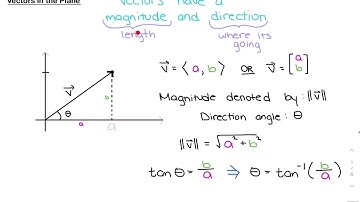 Vectors in the Plane
Vectors have a
magnitude and direction
length
where its going
V⃗ = ⟨a, b⟩ OR V⃗ = [a b]
Magnitude denoted by: ‖V⃗‖
Direction angle: θ
‖V⃗‖ = √(a² + b²)
tan θ = b/a ⇒ θ = tan⁻¹(b/a)
V⃗
b
θ
a
a